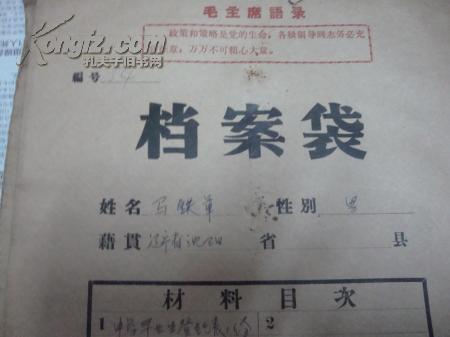 毛主席語录
政策和策略是党的生命，各级领导同志务必充
意，万万不可粗心大意。
编号 14
孔夫子旧书网
档案袋
姓名 马铁军 性别 男
藉贯 辽宁省沈阳 省 县
材料目次
1 中学毕业生登记表 1份 2